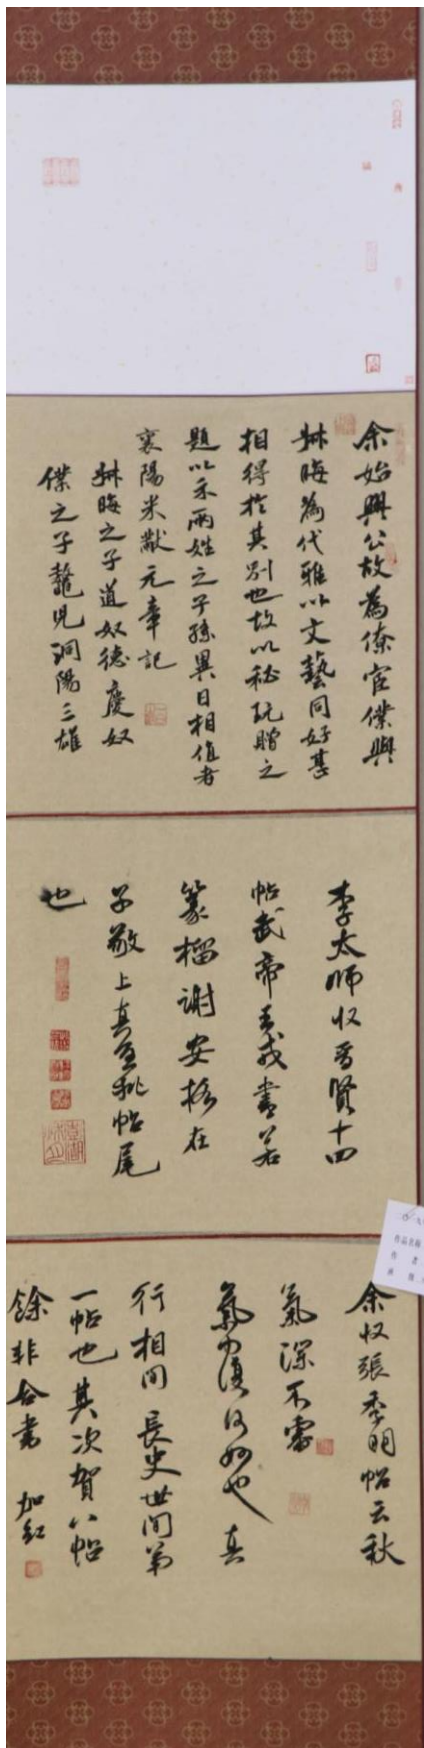 余始興公故為僚宦僕與
叔晦為代雅以文藝同好甚
相得於其別也故以秘玩贈之
題以示兩姓之子孫異日相值者
襄陽米黻元章記
叔晦之子道奴德慶奴
僕之子鼇兒洞陽三雄
李太師收晉賢十四
帖武帝王戎書若
篆籀謝安格在
子敬上真宜批帖尾
也
余收張季明帖云秋
氣深不審
氣力復何如也真
行相間長史世間第
一帖也其次賀八帖
餘非合書 加紅
作品名称
作者